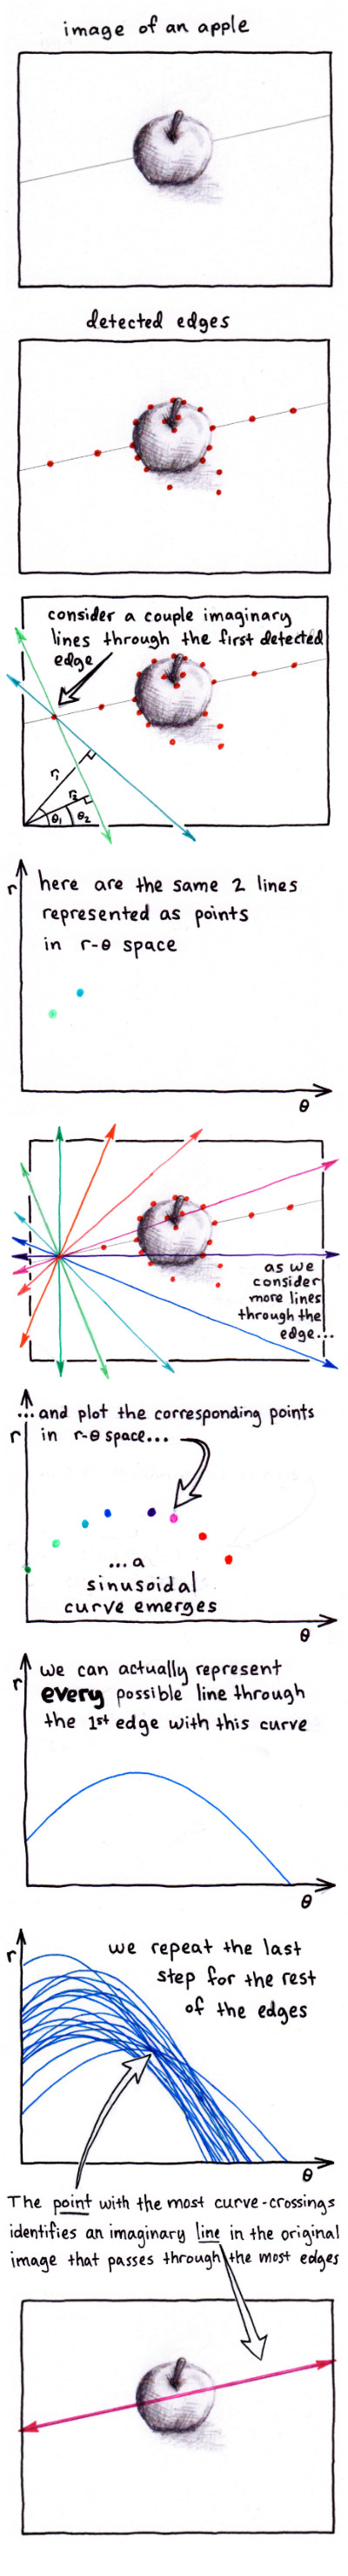 image of an apple
detected edges
consider a couple imaginary
lines through the first detected
edge
r₁
r₂
θ₁
θ₂
r
here are the same 2 lines
represented as points
in r-θ space
θ
as we
consider
more lines
through the
edge...
...and plot the corresponding points
r
in r-θ space...
...a
sinusoidal
curve emerges
θ
r
we can actually represent
every possible line through
the 1st edge with this curve
θ
r
we repeat the last
step for the rest
of the edges
θ
The point with the most curve-crossings
identifies an imaginary line in the original
image that passes through the most edges